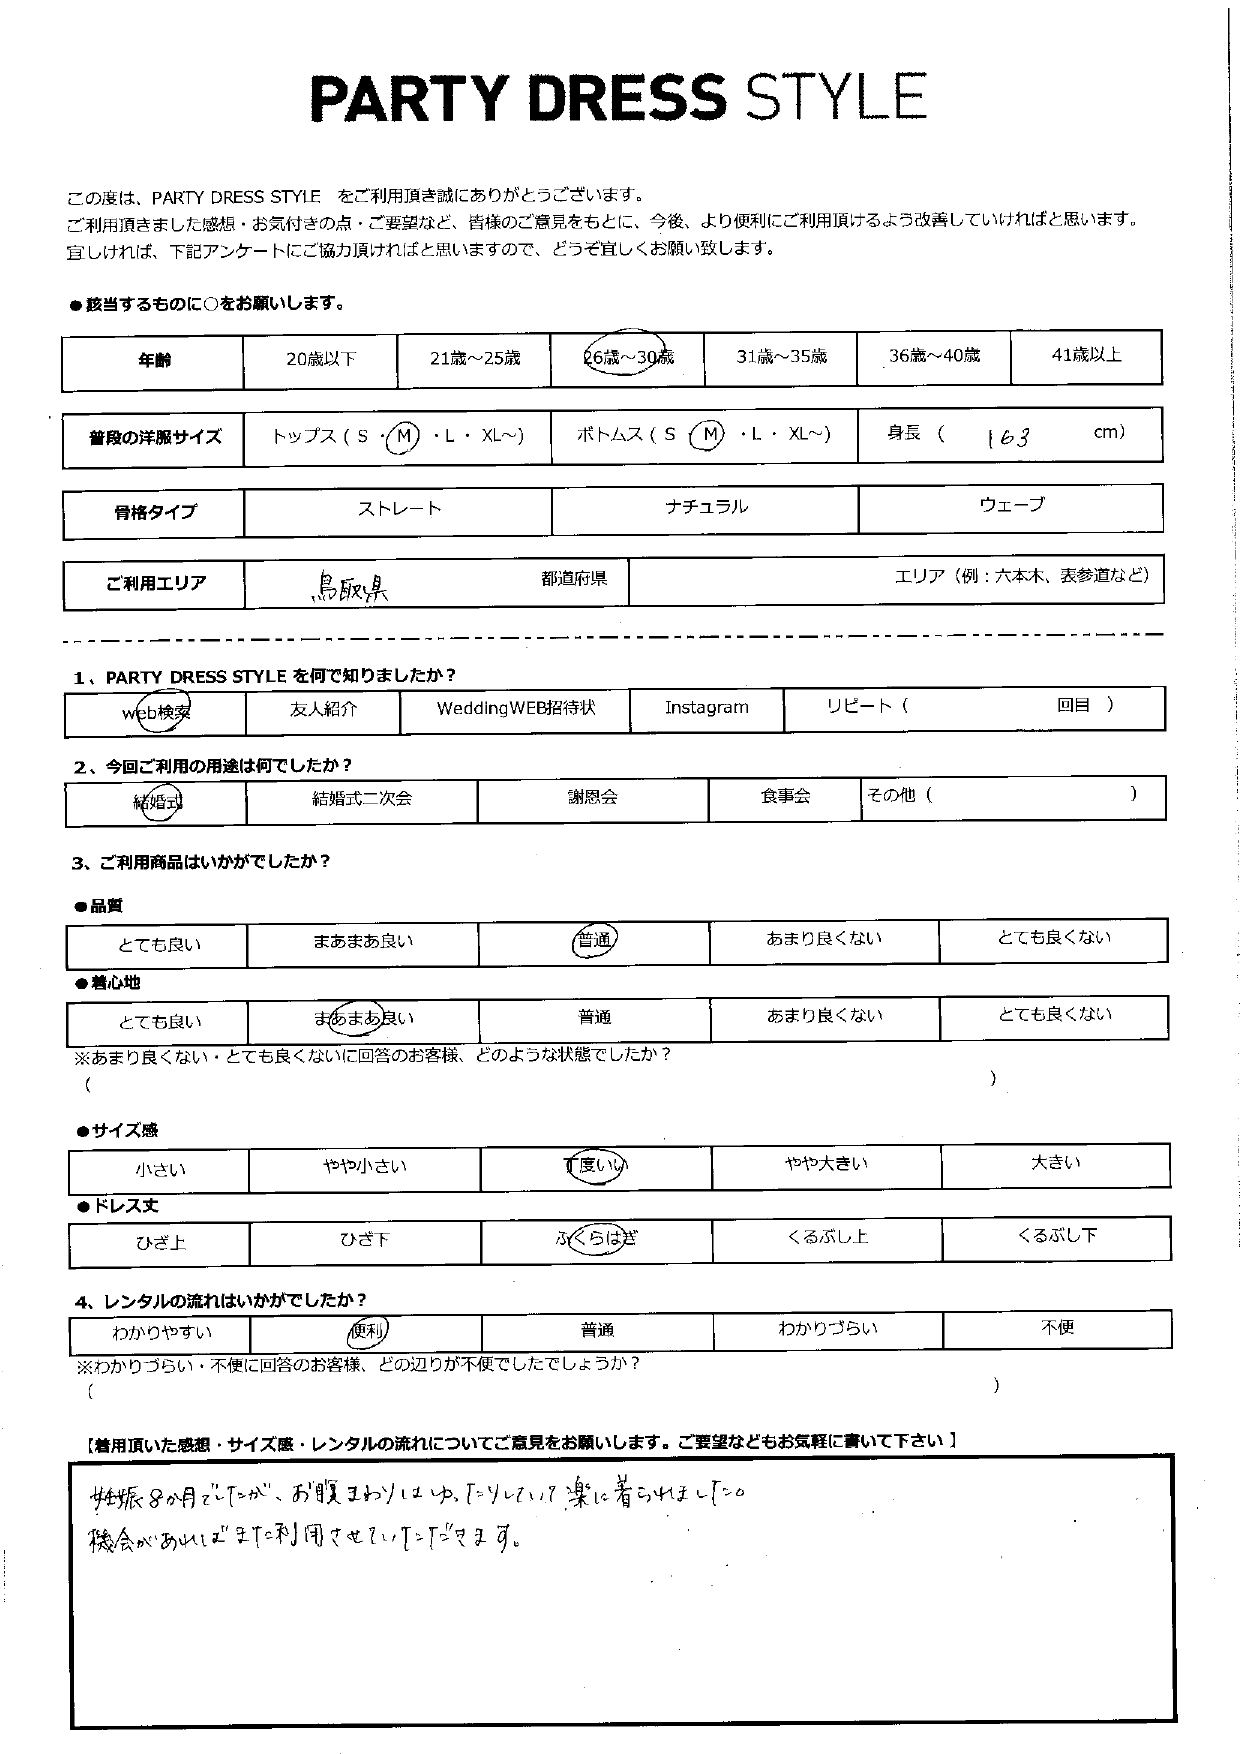 PARTY DRESS STYLE
この度は、PARTY DRESS STYLE をご利用頂き誠にありがとうございます。
ご利用頂きました感想・お気付きの点・ご要望など、皆様のご意見をもとに、今後、より便利にご利用頂けるよう改善していければと思います。
宜しければ、下記アンケートにご協力頂ければと思いますので、どうぞ宜しくお願い致します。
●該当するものに○をお願いします。
年齢 20歳以下 21歳～25歳 26歳～30歳 31歳～35歳 36歳～40歳 41歳以上
普段の洋服サイズ トップス ( S ・ M ・ L ・ XL～) ボトムス ( S ・ M ・ L ・ XL～) 身長 ( 163 cm)
骨格タイプ ストレート ナチュラル ウェーブ
ご利用エリア 鳥取県 都道府県 エリア（例：六本木、表参道など）
1、PARTY DRESS STYLE を何で知りましたか？
web検索 友人紹介 WeddingWEB招待状 Instagram リピート ( 回目 )
2、今回ご利用の用途は何でしたか？
結婚式 結婚式二次会 謝恩会 食事会 その他 ( )
3、ご利用商品はいかがでしたか？
●品質
とても良い まあまあ良い 普通 あまり良くない とても良くない
●着心地
とても良い まあまあ良い 普通 あまり良くない とても良くない
※あまり良くない・とても良くないに回答のお客様、どのような状態でしたか？
( )
●サイズ感
小さい やや小さい 丁度いい やや大きい 大きい
●ドレス丈
ひざ上 ひざ下 ふくらはぎ くるぶし上 くるぶし下
4、レンタルの流れはいかがでしたか？
わかりやすい 便利 普通 わかりづらい 不便
※わかりづらい・不便に回答のお客様、どの辺りが不便でしたでしょうか？
( )
【着用頂いた感想・サイズ感・レンタルの流れについてご意見をお願いします。ご要望などもお気軽に書いて下さい】
妊娠8か月でしたが、お腹まわりはゆったりしていて楽に着られました。
機会があればまた利用させていただきます。